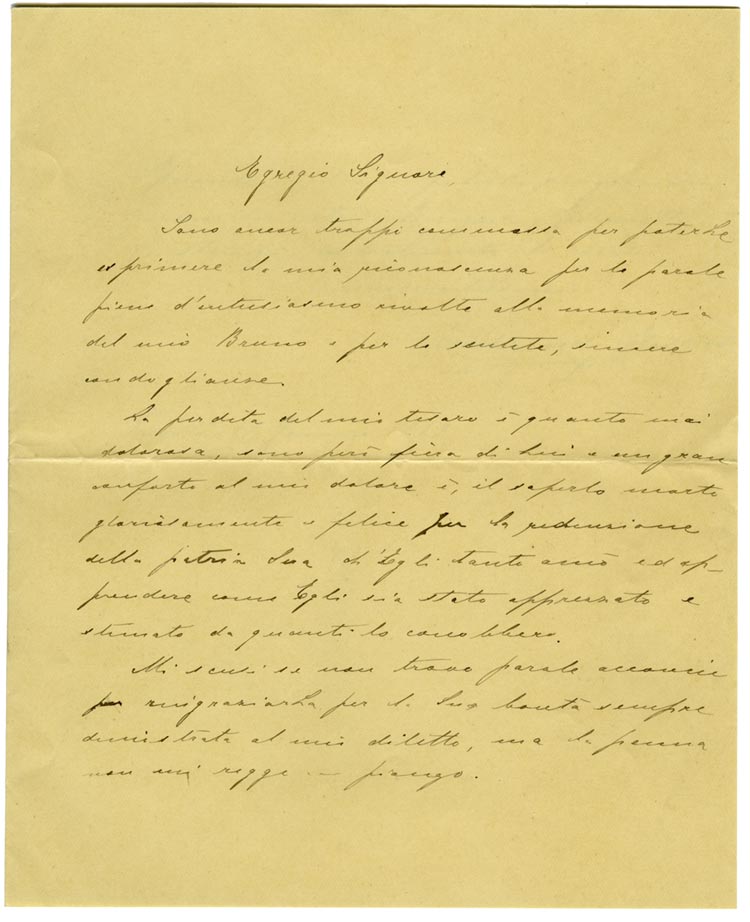 Egregio Signore,
Sono ancor troppo commossa per poterLe
esprimere la mia riconoscenza per le parole
piene d'entusiasmo rivolte alla memoria
del mio Bruno e per le sentite, sincere
condoglianze.
La perdita del mio tesoro è quanto mai
dolorosa, sono però fiera di Lui e un gran
conforto al mio dolore è, il saperlo morto
gloriosamente e felice per la redenzione
della patria Sua ch'Egli tanto amò ed ap-
prendere come Egli sia stato apprezzato e
stimato da quanti lo conobbero.
Mi scusi se non trovo parole acconcie
per ringraziarLa per la Sua bontà sempre
dimostrata al mio diletto, ma la penna
non mi regge — piango.